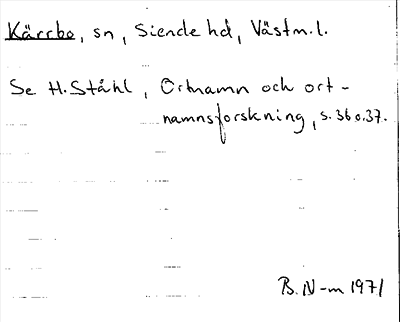 Kärrbo, sn, Siende hd, Västm. l.
Se H. Ståhl, Ortnamn och ort-
namnsforskning, s. 36 o. 37.
B. N-m 1971